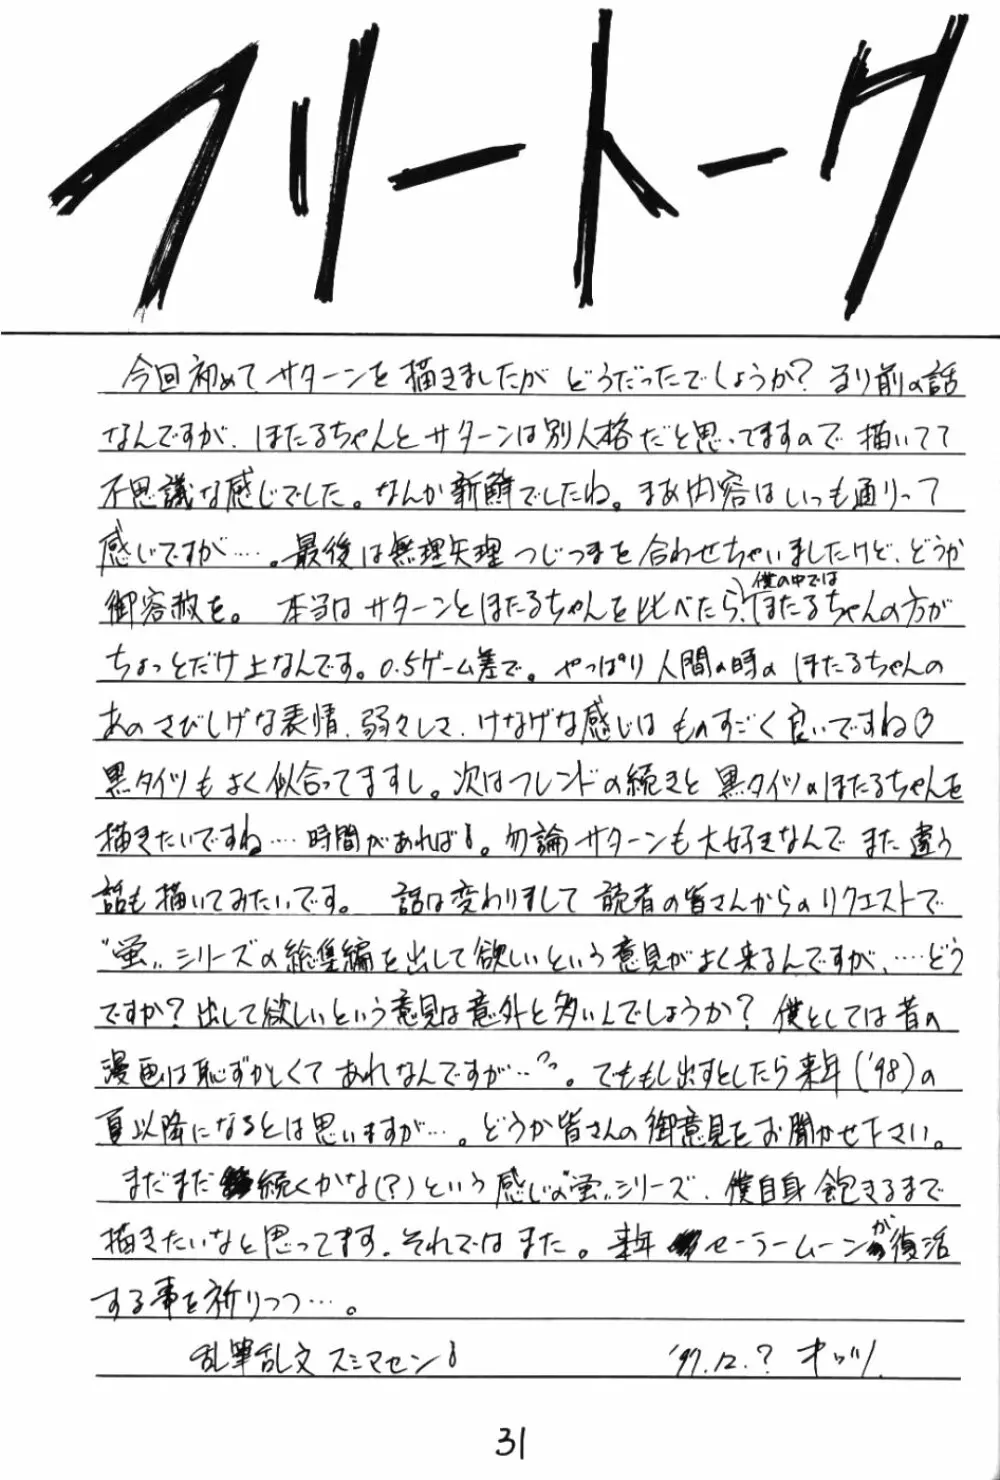 フリートーク
今回初めてサターンを描きましたがどうだったでしょうか?より前の話
なんですが、ほたるちゃんとサターンは別人格だと思ってますので描いてて
不思議な感じでした。なんか新鮮でしたね。まあ内容はいつも通りって
感じですが‥‥。最後は無理矢理つじつまを合わせちゃいましたけど、どうか
御容赦を。 本当はサターンとほたるちゃんを比べたら、僕の中ではほたるちゃんの方が
ちょっとだけ上なんです。0.5ゲーム差で。やっぱり人間の時のほたるちゃんの
あのさびしげな表情、弱々しさ、けなげな感じはものすごく良いですね♡
黒タイツもよく似合ってますし。次はフレンドの続きと黒タイツのほたるちゃんを
描きたいですね‥‥時間があれば!。勿論サターンも大好きなんでまた違う
話も描いてみたいです。 話は変わりまして読者の皆さんからのリクエストで
“蛍„シリーズの総集編を出して欲しいという意見がよく来るんですが、‥‥どう
ですか?出して欲しいという意見は意外と多いんでしょうか?僕としては昔の
漫画は恥ずかしくてあれなんですが‥。でももし出すとしたら来年('98)の
夏以降になるとは思いますが‥‥。どうか皆さんの御意見をお聞かせ下さい。
まだまだ続くかな(?)という感じの“蛍„シリーズ、僕自身飽きるまで
描きたいなと思ってます。それではまた。来年セーラームーンが復活
する事を祈りつつ‥‥。
乱筆乱文スミマセン!
'97.12.?
31